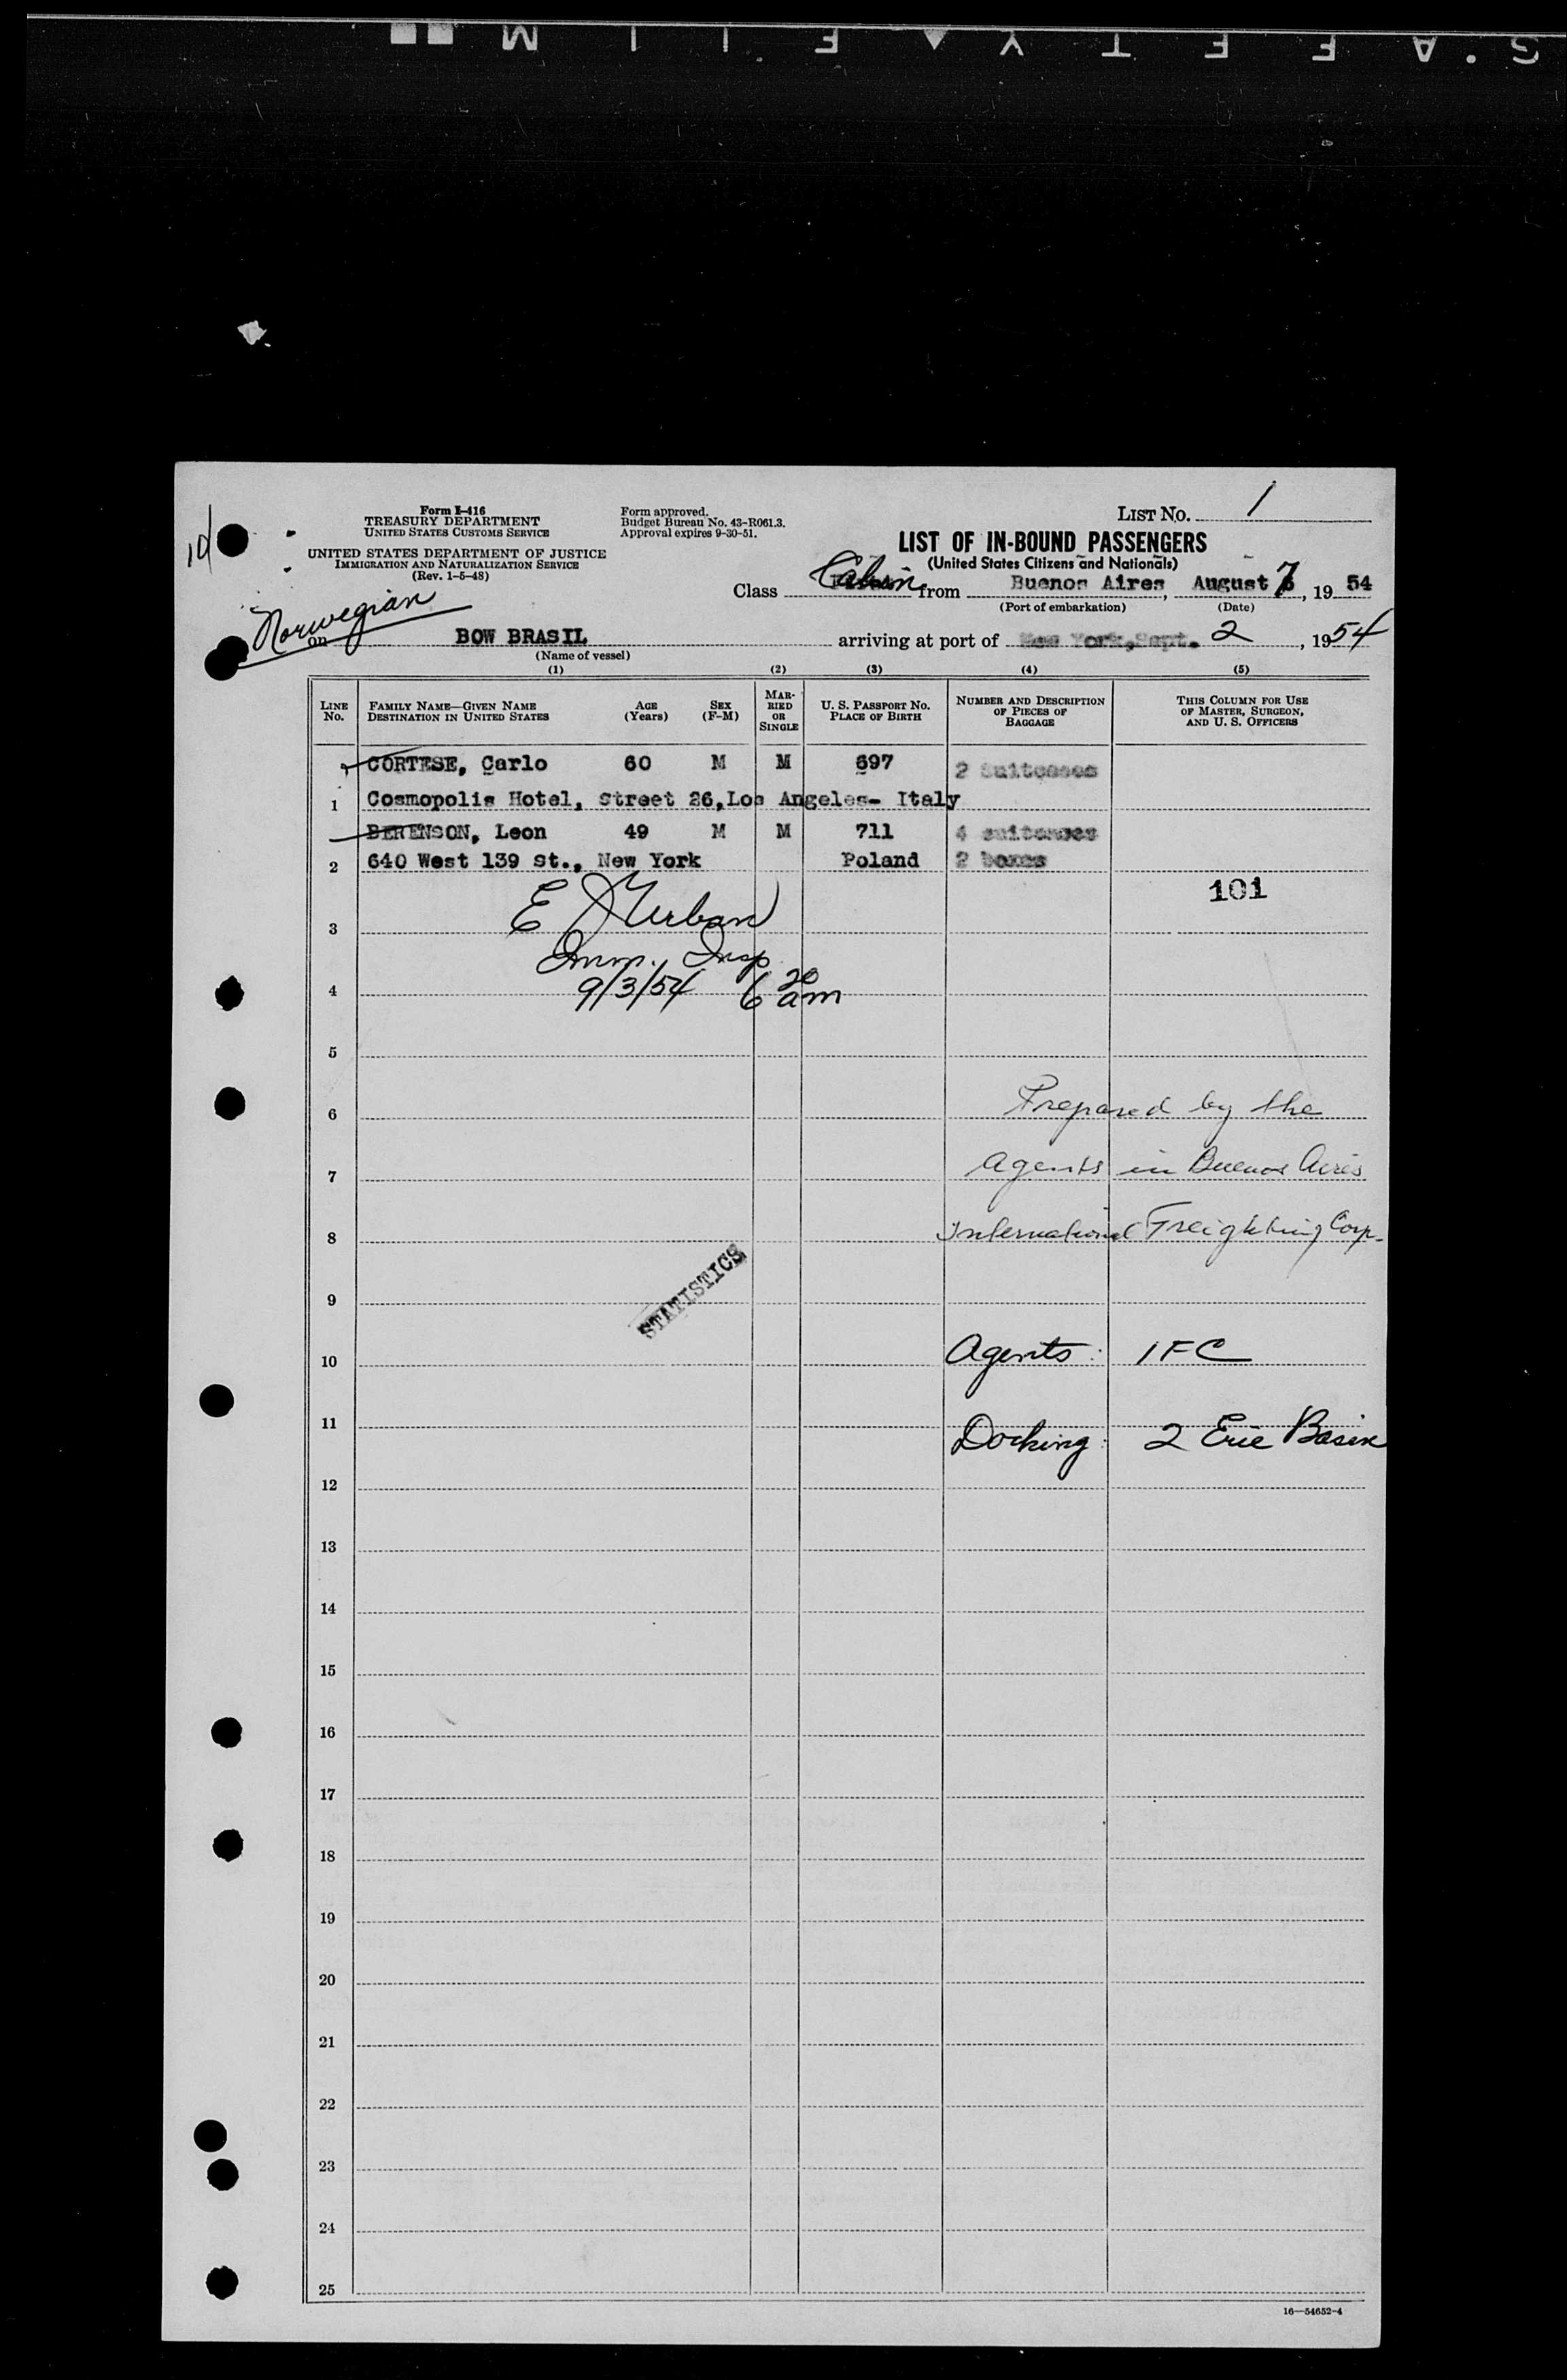 SAFETY FILM
Form I-416
TREASURY DEPARTMENT
UNITED STATES CUSTOMS SERVICE
UNITED STATES DEPARTMENT OF JUSTICE
IMMIGRATION AND NATURALIZATION SERVICE
(Rev. 1-5-48)
Form approved.
Budget Bureau No. 43-R061.3.
Approval expires 9-30-51.
LIST NO. 1
LIST OF IN-BOUND PASSENGERS
(United States Citizens and Nationals)
Class Cabin from Buenos Aires, August 7, 19 54
(Port of embarkation) (Date)
Norwegian
on BOW BRASIL arriving at port of New York, Sept. 2, 1954
(Name of vessel)
(1) (2) (3) (4) (5)
LINE NO. FAMILY NAME—GIVEN NAME DESTINATION IN UNITED STATES AGE (Years) SEX (F-M) MARRIED OR SINGLE U. S. PASSPORT NO. PLACE OF BIRTH NUMBER AND DESCRIPTION OF PIECES OF BAGGAGE THIS COLUMN FOR USE OF MASTER, SURGEON, AND U. S. OFFICERS
CORTESE, Carlo 60 M M 697 2 suitcases
1 Cosmopolis Hotel, street 26, Los Angeles- Italy
BERENSON, Leon 49 M M 711 4 suitcases
2 640 West 139 st., New York Poland 2 boxes
101
3 E Urban
Imm. Insp
4 9/3/54 6 20 am
5
6 Prepared by the
7 agents in Buenos Aires
8 International Freighting Corp.
STATISTICS
9
10 Agents: IFC
11 Docking: 2 Erie Basin
12
13
14
15
16
17
18
19
20
21
22
23
24
25
16—54652-4